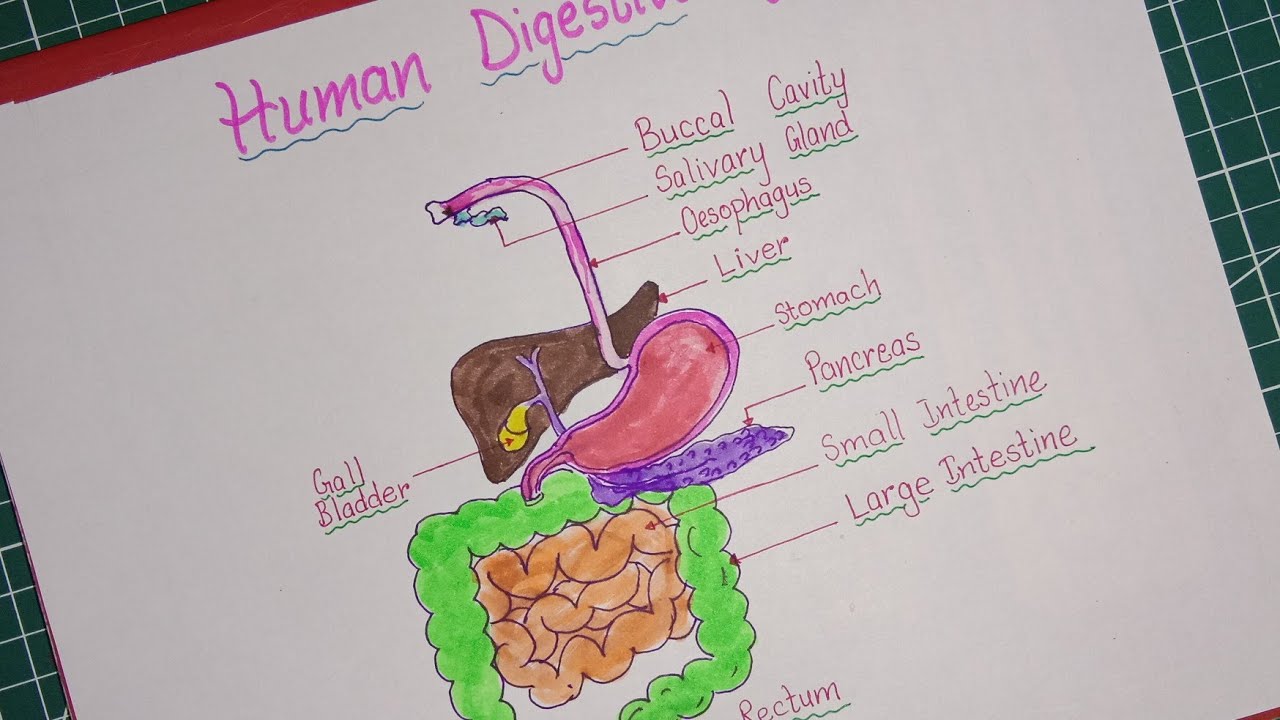 Human Digestive
Buccal Cavity
Salivary Gland
Oesophagus
Liver
Stomach
Pancreas
Small Intestine
Large Intestine
Gall
Bladder
Rectum